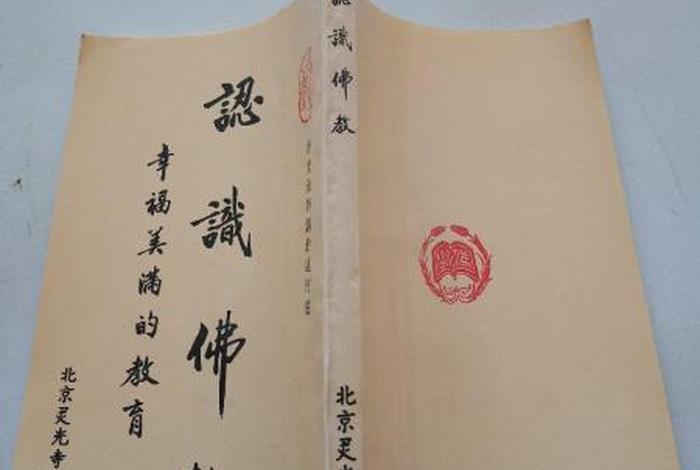 認識佛
幸福美滿的教育
北京灵光寺
認識佛教
北京灵光